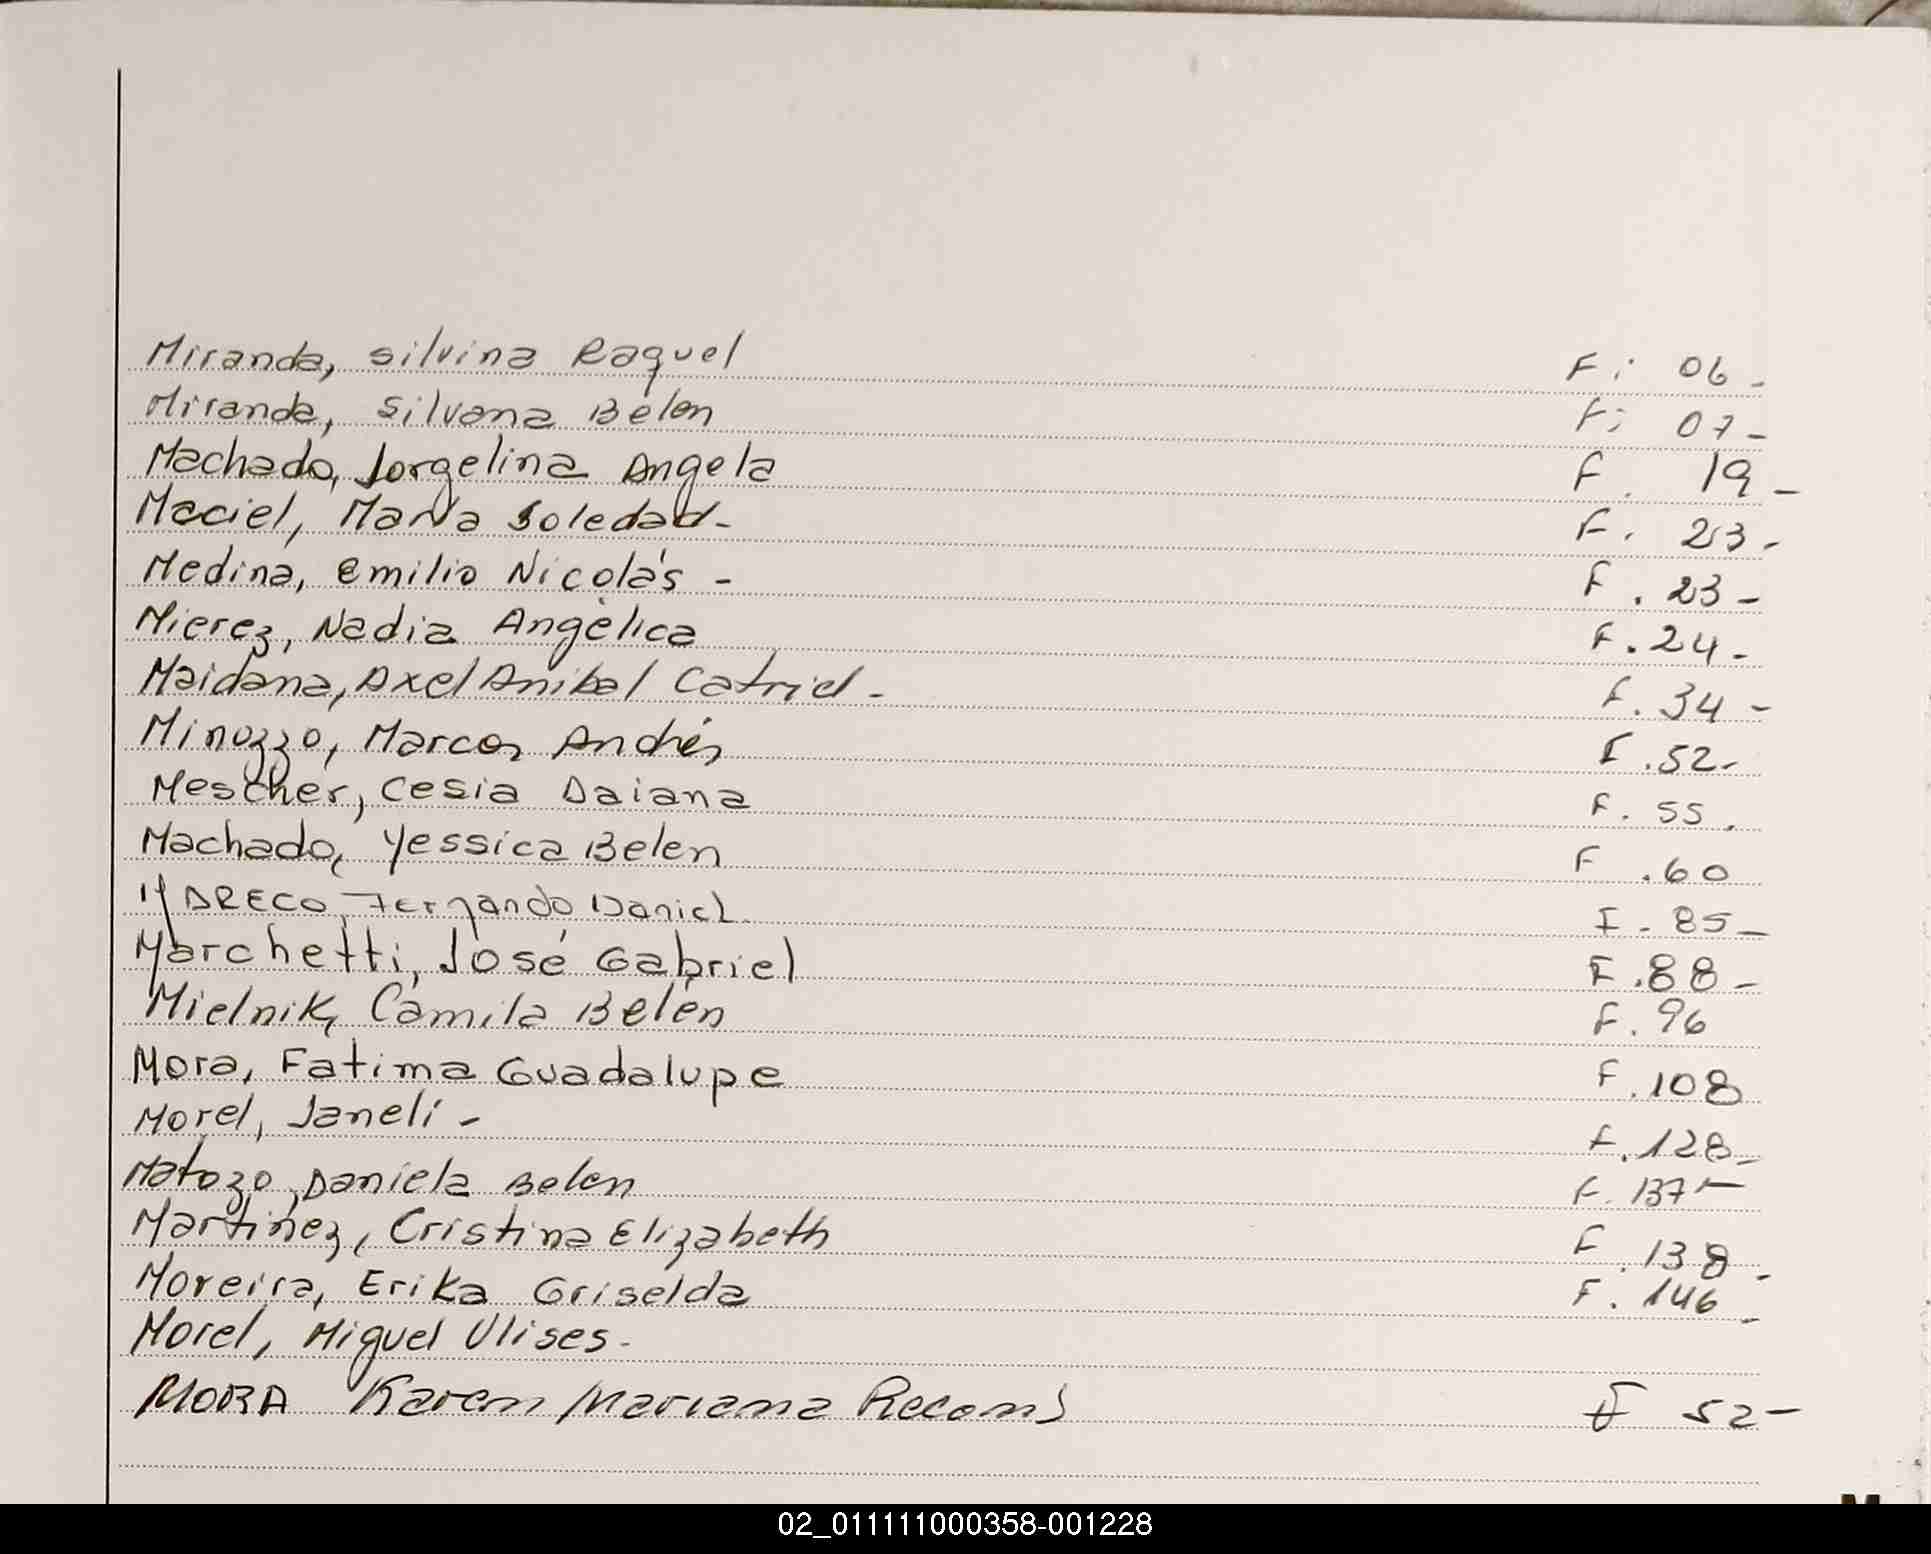 Miranda, Silvina Raquel F: 06-
Miranda, Silvana Belen F: 07-
Machado, Jorgelina Angela F. 19-
Maciel, María Soledad- F. 23-
Medina, Emilio Nicolás - F. 23-
Mierez, Nadia Angélica F. 24-
Maidana, Axel Anibal Catriel- F. 34-
Minozzo, Marcos Andrés F. 52-
Mescher, Cesia Daiana F. 55.
Machado, Yessica Belen F. 60
Fernando Daniel F. 85-
Marchetti, José Gabriel F. 88-
Mielnik, Camila Belén F. 96
Mora, Fatima Guadalupe F. 108
Morel, Janelí- F. 128-
Matozo, Daniela Belen F. 137-
Martinez, Cristina Elizabeth F. 138-
Moreira, Erika Griselda F. 146-
Morel, Miguel Ulises-
MORA Karen Mariana F 52-
M
02_011111000358-001228